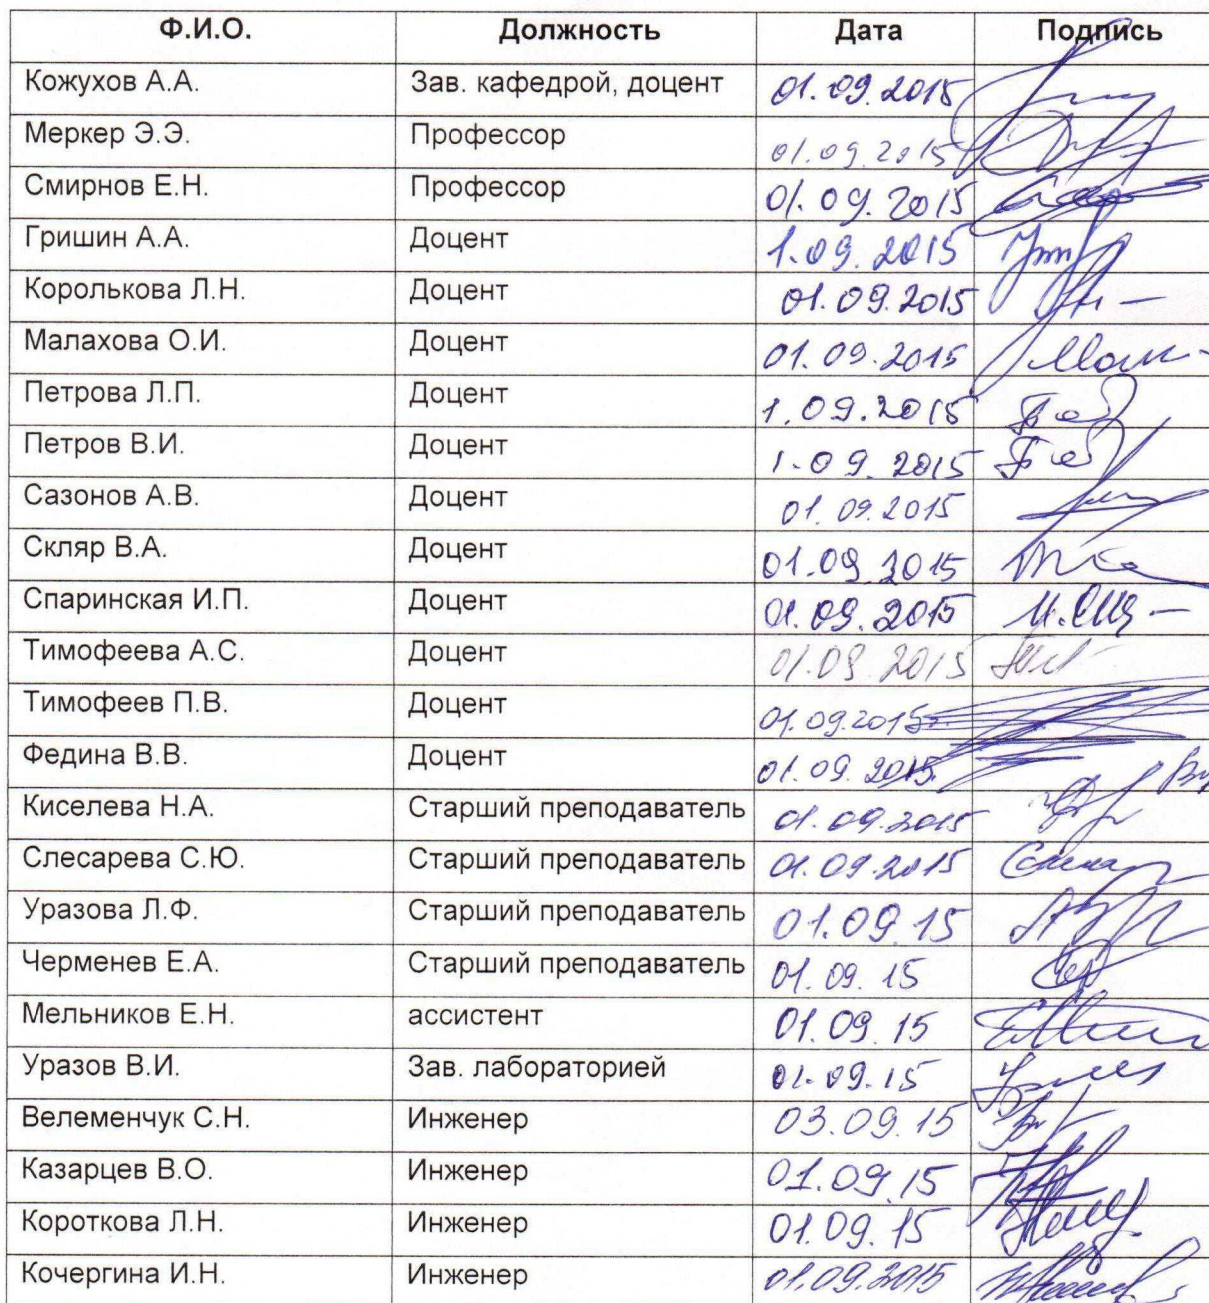 Ф.И.О. Должность Дата Подпись
Кожухов А.А. Зав. кафедрой, доцент 01.09.2015
Меркер Э.Э. Профессор 01.09.2015
Смирнов Е.Н. Профессор 01.09.2015
Гришин А.А. Доцент 1.09.2015
Королькова Л.Н. Доцент 01.09.2015
Малахова О.И. Доцент 01.09.2015
Петрова Л.П. Доцент 1.09.2015
Петров В.И. Доцент 1.09.2015
Сазонов А.В. Доцент 01.09.2015
Скляр В.А. Доцент 01.09.2015
Спаринская И.П. Доцент 01.09.2015
Тимофеева А.С. Доцент 01.09 2015
Тимофеев П.В. Доцент 01.09.2015г.
Федина В.В. Доцент 01.09.2015
Киселева Н.А. Старший преподаватель 01.09.2015
Слесарева С.Ю. Старший преподаватель 01.09.2015
Уразова Л.Ф. Старший преподаватель 01.09.15
Черменев Е.А. Старший преподаватель 01.09.15
Мельников Е.Н. ассистент 01.09.15
Уразов В.И. Зав. лабораторией 01.09.15
Велеменчук С.Н. Инженер 03.09.15
Казарцев В.О. Инженер 01.09.15
Короткова Л.Н. Инженер 01.09.15
Кочергина И.Н. Инженер 01.09.2015